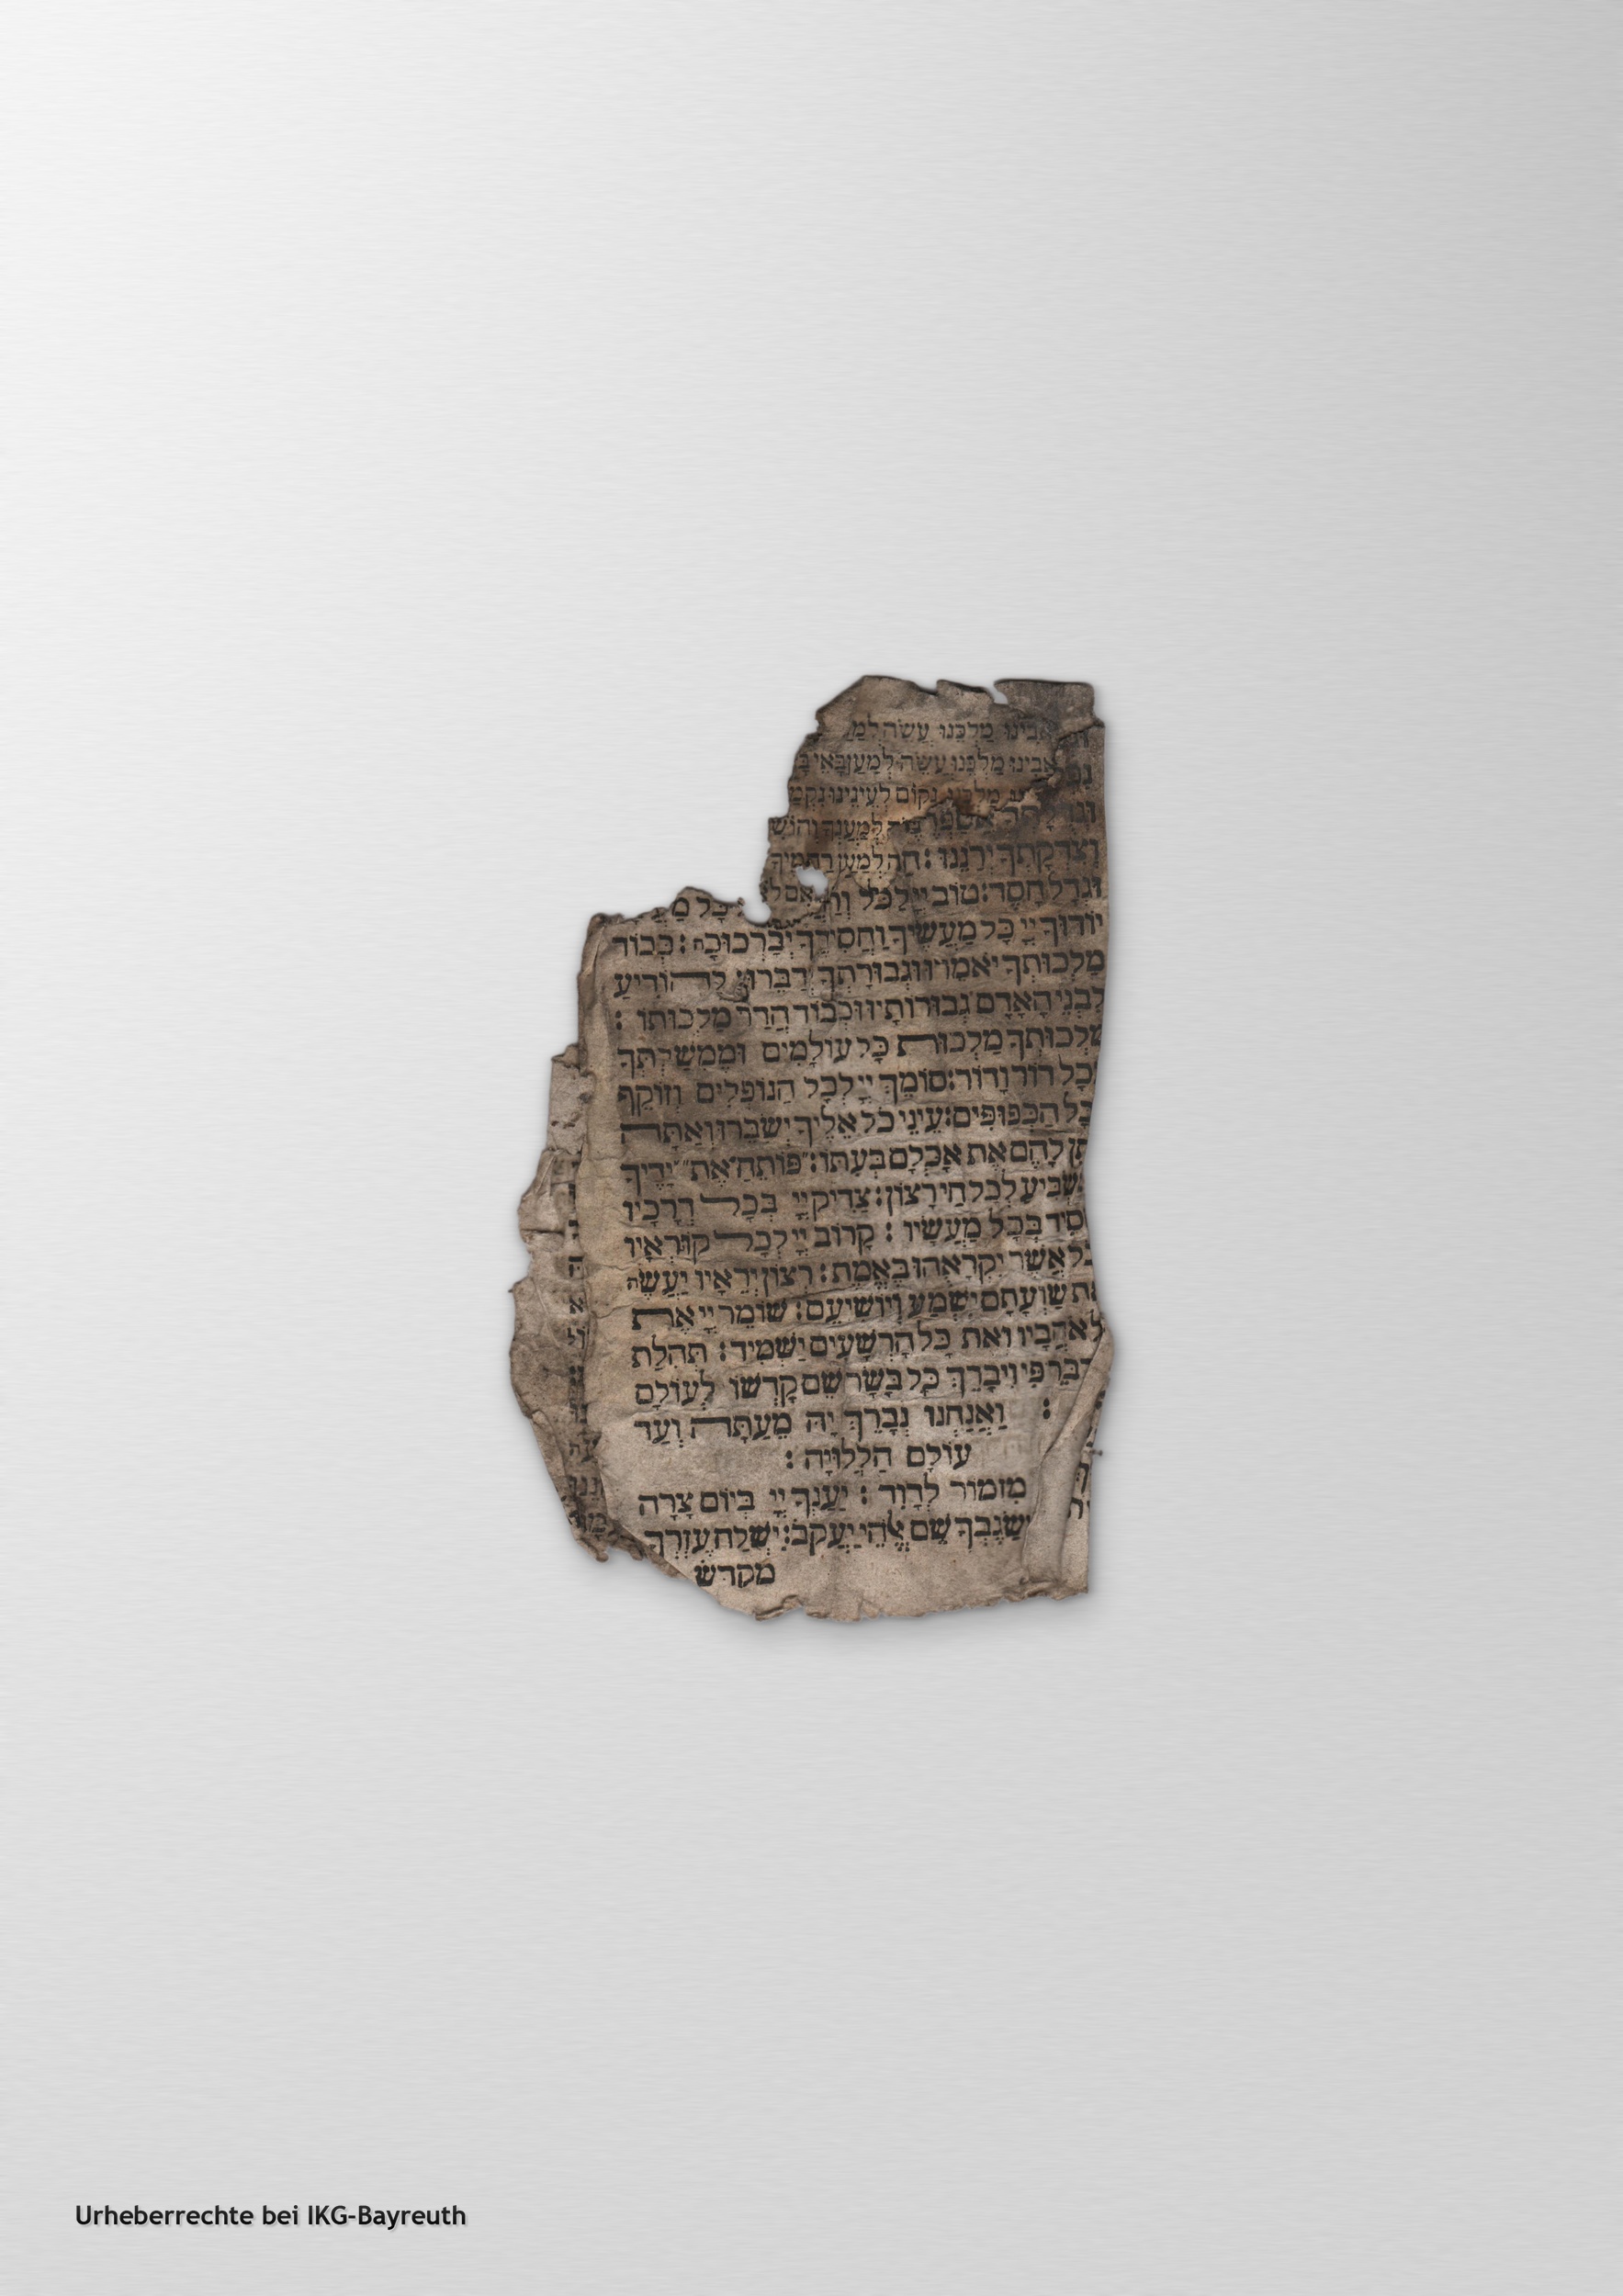 אבינו מלכנו עשה למע
אבינו מלכנו עשה למען באי ב
מלכנו נקום לעינינו נקמ
למענך והושי
וְצִדְקָתְךָ יְרַנֵּנוּ: חַ למען רחמיך
וּגְדָל חָסֶד: טוֹב יְיָ לַכֹּל
יוֹדוּךָ יְיָ כָּל מַעֲשֶׂיךָ וַחֲסִידֶךָ יְבָרְכוּכָה: כְּבוֹד
מַלְכוּתְךָ יֹאמֵרוּ וּגְבוּרָתְךָ יְדַבֵּרוּ: לְהוֹדִיעַ
לִבְנֵי הָאָדָם גְּבוּרוֹתָיו וּכְבוֹד הֲדַר מַלְכוּתוֹ:
מַלְכוּתְךָ מַלְכוּת כָּל עוֹלָמִים וּמֶמְשַׁלְתְּךָ
בְּכָל דּוֹר וָדוֹר: סוֹמֵךְ יְיָ לְכָל הַנּוֹפְלִים וְזוֹקֵף
לְכָל הַכְּפוּפִים: עֵינֵי כֹל אֵלֶיךָ יְשַׂבֵּרוּ וְאַתָּה
תֵן לָהֶם אֶת אָכְלָם בְּעִתּוֹ: פּוֹתֵחַ אֶת יָדֶיךָ
שְׂבִּיעַ לְכָל חַי רָצוֹן: צַדִּיק יְיָ בְּכָל דְּרָכָיו
סִיד בְּכָל מַעֲשָׂיו: קָרוֹב יְיָ לְכָל קוֹרְאָיו
כֹל אֲשֶׁר יִקְרָאֻהוּ בֶאֱמֶת: רְצוֹן יְרֵאָיו יַעֲשֶׂה
אֶת שַׁוְעָתָם יִשְׁמַע וְיוֹשִׁיעֵם: שׁוֹמֵר יְיָ אֶת
ל אֹהֲבָיו וְאֵת כָּל הָרְשָׁעִים יַשְׁמִיד: תְּהִלַּת
דַבֵּר פִּי וִיבָרֵךְ כָּל בָּשָׂר שֵׁם קָדְשׁוֹ לְעוֹלָם
: וַאֲנַחְנוּ נְבָרֵךְ יָהּ מֵעַתָּה וְעַד
עוֹלָם הַלְלוּיָהּ:
מִזְמוֹר לְדָוִד: יַעַנְךָ יְיָ בְּיוֹם צָרָה
יְשַׂגֶּבְךָ שֵׁם אֱלֹהֵי יַעֲקֹב: יִשְׁלַח עֶזְרְךָ
מקדש
Urheberrechte bei IKG-Bayreuth